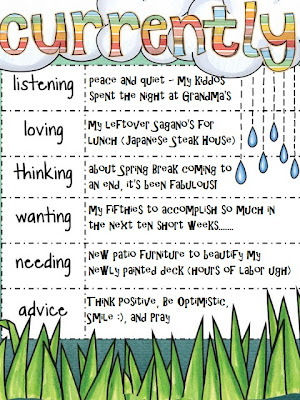 currently
listening
peace and quiet - My kiddos
Spent the night at Grandma's
loving
My leftover Sagano's for
lunch (Japanese Steak House)
thinking
about Spring Break coming to
an end, it's been fabulous!
wanting
My fifthies to accomplish so much in
the next ten short weeks.......
needing
new patio furniture to beautify my
newly painted deck (hours of labor ugh)
advice
Think positive, Be Optimistic,
Smile :), and Pray